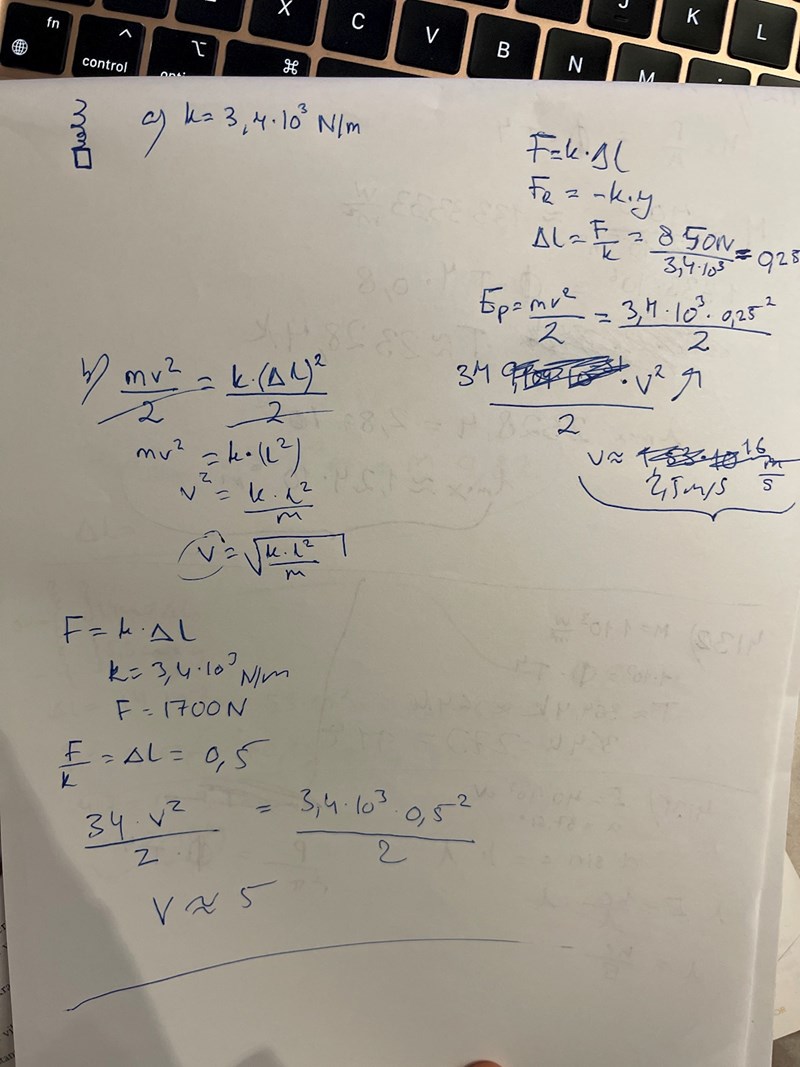 X C V B N M J K L
fn
control
⌥
⌘
a) k = 3,4·10³ N/m
F = k·Δl
F_R = -k·y
Δl = F/k = 850N / 3,4·10³ = 0,25
E_p = mv²/2 = 3,4·10³·0,25² / 2
34 · v² / 2
v ≈
2,5 m/s
b) mv²/2 = k·(Δl)²/2
mv² = k·(l²)
v² = k·l²/m
v = √(k·l²/m)
F = k·Δl
k = 3,4·10³ N/m
F = 1700N
F/k = Δl = 0,5
34·v²/2 = 3,4·10³·0,5²/2
v ≈ 5